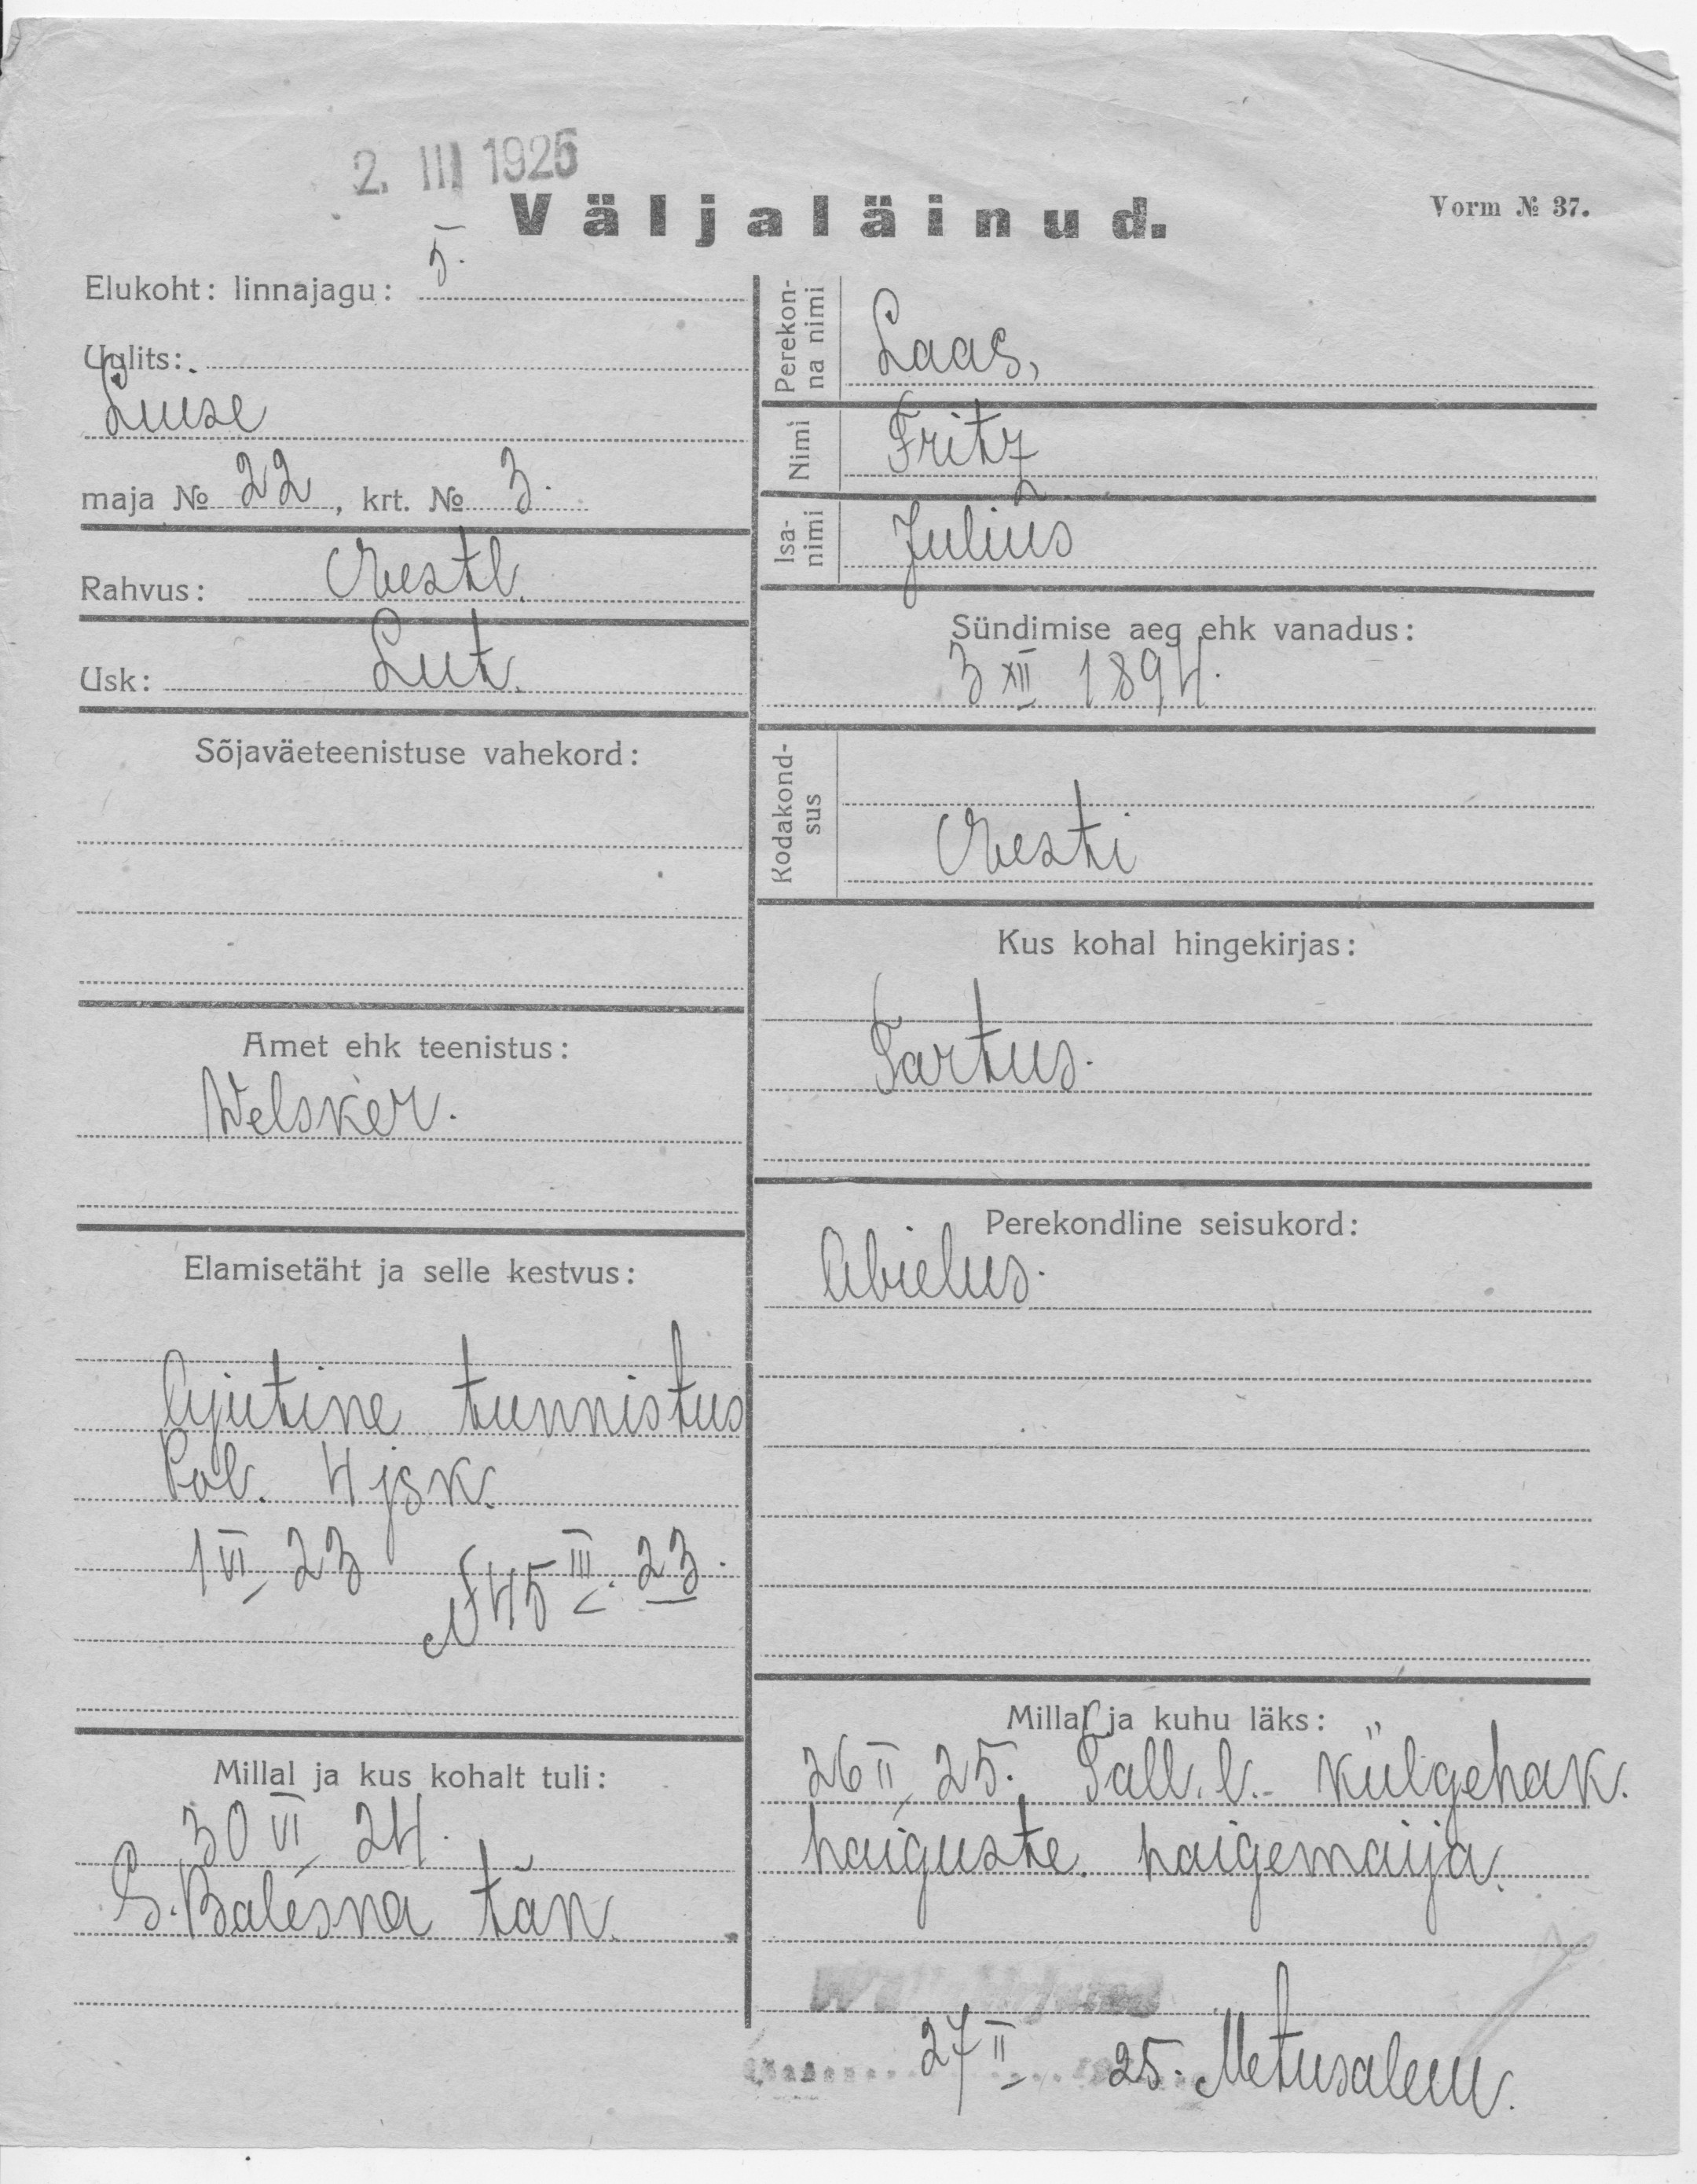 2. III 1925
Väljaläinud.
Vorm № 37.
Elukoht: linnajagu: 5.
Uulits:
Luise
maja № 22, krt. № 3.
Rahvus: Eestl.
Usk: Lut.
Sõjaväeteenistuse vahekord:
Amet ehk teenistus:
Welsker.
Elamisetäht ja selle kestvus:
Ajutine tunnistus
Pol. 4 jsk.
1 VI 23 N 45 III 23.
Millal ja kus kohalt tuli:
30 VI 24.
S. Balesna tän.
Perekon-
na nimi
Laas,
Nimi
Fritz
Isa-
nimi
Julius
Sündimise aeg ehk vanadus:
3 XII 1894.
Kodakond-
sus
Eesti
Kus kohal hingekirjas:
Tartus.
Perekondline seisukord:
Abielus.
Millal ja kuhu läks:
26 II 25. Tall. l. külgehak.
haiguste haigemaija.
27 II 25. Metusalem.